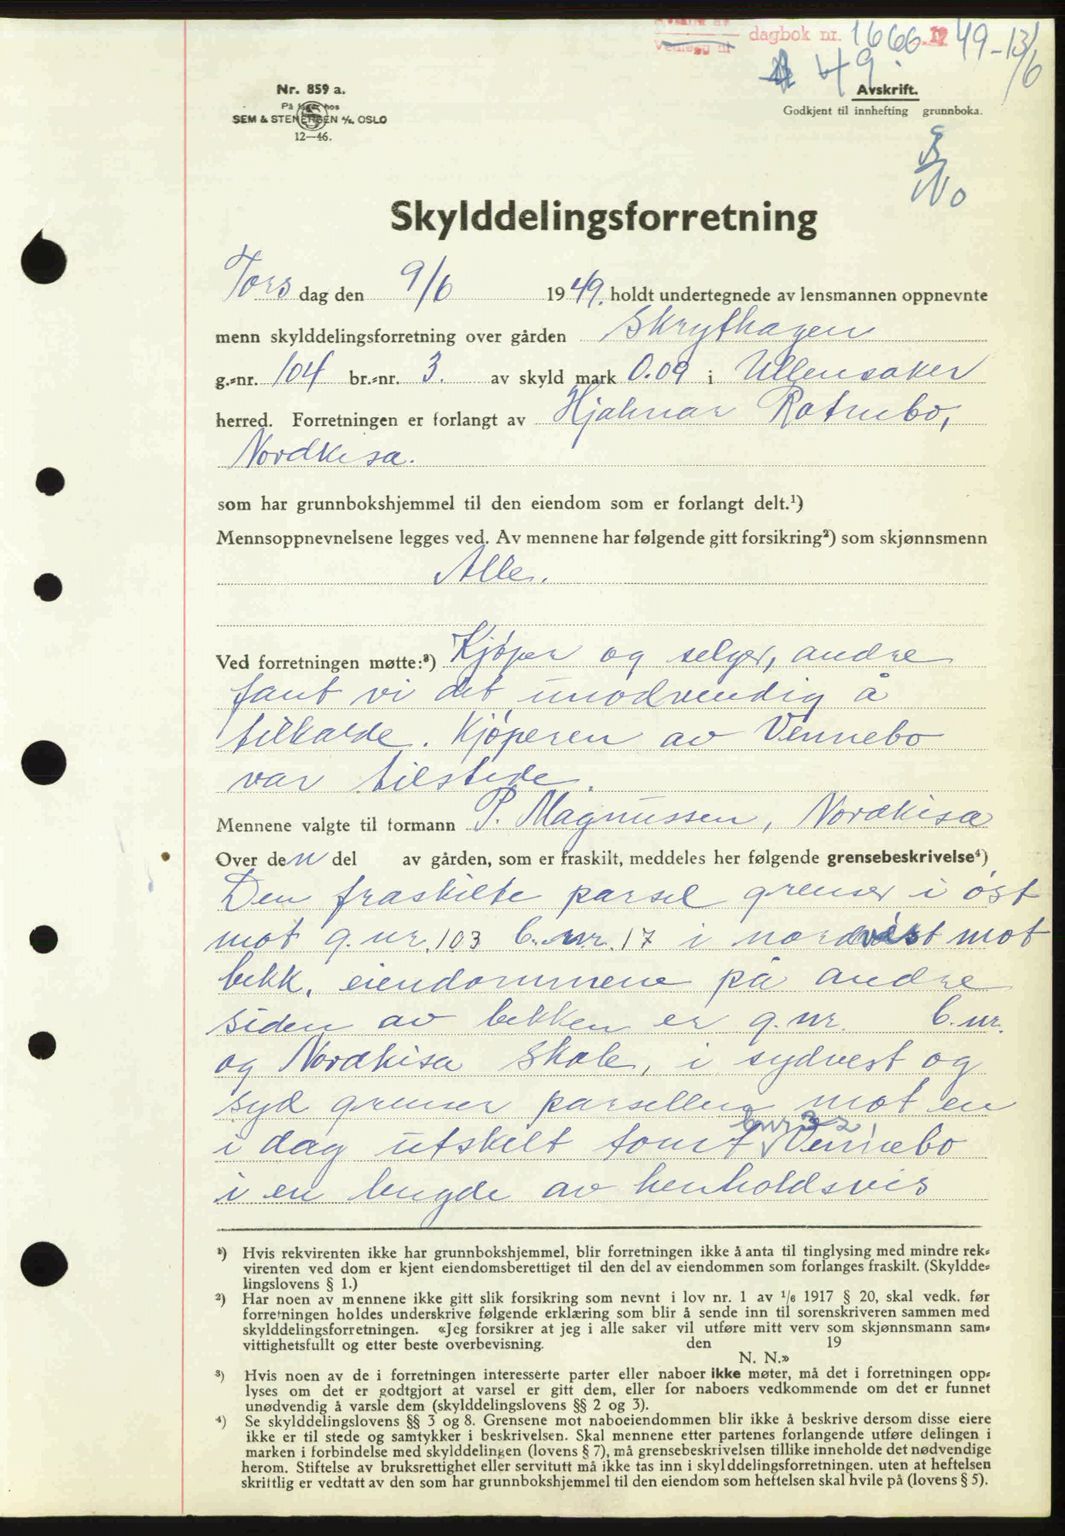 dagbok nr. 1666. 19 49 - 13/6
49.
Nr. 859 a.
På lager hos
SEM & STENERSEN A/S, OSLO
12—46.
Avskrift.
Godkjent til innhefting grunnboka.
Skylddelingsforretning
Tors dag den 9/6 1949. holdt undertegnede av lensmannen oppnevnte
menn skylddelingsforretning over gården Skrythagen
g.-nr. 104 br.-nr. 3. av skyld mark 0.09 i Ullensaker
herred. Forretningen er forlangt av Hjalmar Rotnebo,
Nordkisa.
som har grunnbokshjemmel til den eiendom som er forlangt delt.¹)
Mennsoppnevnelsene legges ved. Av mennene har følgende gitt forsikring²) som skjønnsmenn
Alle.
Ved forretningen møtte:³) Kjøper og selger, andre
fant vi det unødvendig å
tilkalde. Kjøperen av Vennebo
var tilstede.
Mennene valgte til formann P. Magnussen, Nordkisa
Over den del av gården, som er fraskilt, meddeles her følgende grensebeskrivelse⁴)
Den fraskilte parsel grenser i øst
mot g.nr. 103 b.nr. 17 i nordvest mot
bekk, eiendommene på andre
siden av bekken er g.nr. b.nr.
og Nordkisa Skole, i sydvest og
syd grenser parsellen mot en
bnr 32
i dag utskilt tomt Vennebo
i en lengde av henholdsvis
¹) Hvis rekvirenten ikke har grunnbokshjemmel, blir forretningen ikke å anta til tinglysing med mindre rek-
virenten ved dom er kjent eiendomsberettiget til den del av eiendommen som forlanges fraskilt. (Skyldde-
lingslovens § 1.)
²) Har noen av mennene ikke gitt slik forsikring som nevnt i lov nr. 1 av 1/6 1917 § 20, skal vedk. før
forretningen holdes underskrive følgende erklæring som blir å sende inn til sorenskriveren sammen med
skylddelingsforretningen. «Jeg forsikrer at jeg i alle saker vil utføre mitt verv som skjønnsmann sam-
vittighetsfullt og etter beste overbevisning. den 19
N. N.»
³) Hvis noen av de i forretningen interesserte parter eller naboer ikke møter, må det i forretningen opp-
lyses om det er godtgjort at varsel er gitt dem, eller for naboers vedkommende om det er funnet
unødvendig å varsle dem (skylddelingslovens §§ 2 og 3).
⁴) Se skylddelingslovens §§ 3 og 8. Grensene mot naboeiendommen blir ikke å beskrive dersom disse eiere
ikke er til stede og samtykker i beskrivelsen. Skal mennene etter partenes forlangende utføre delingen i
marken i forbindelse med skylddelingen (lovens § 7), må grensebeskrivelsen tillike inneholde det nødvendige
herom. Stiftelse av bruksrettighet eller servitutt må ikke tas inn i skylddelingsforretningen. uten at heftelsen
skriftlig er vedtatt av den som har grunnbokshjemmel til den eiendom som heftelsen skal hvile på (lovens § 5).